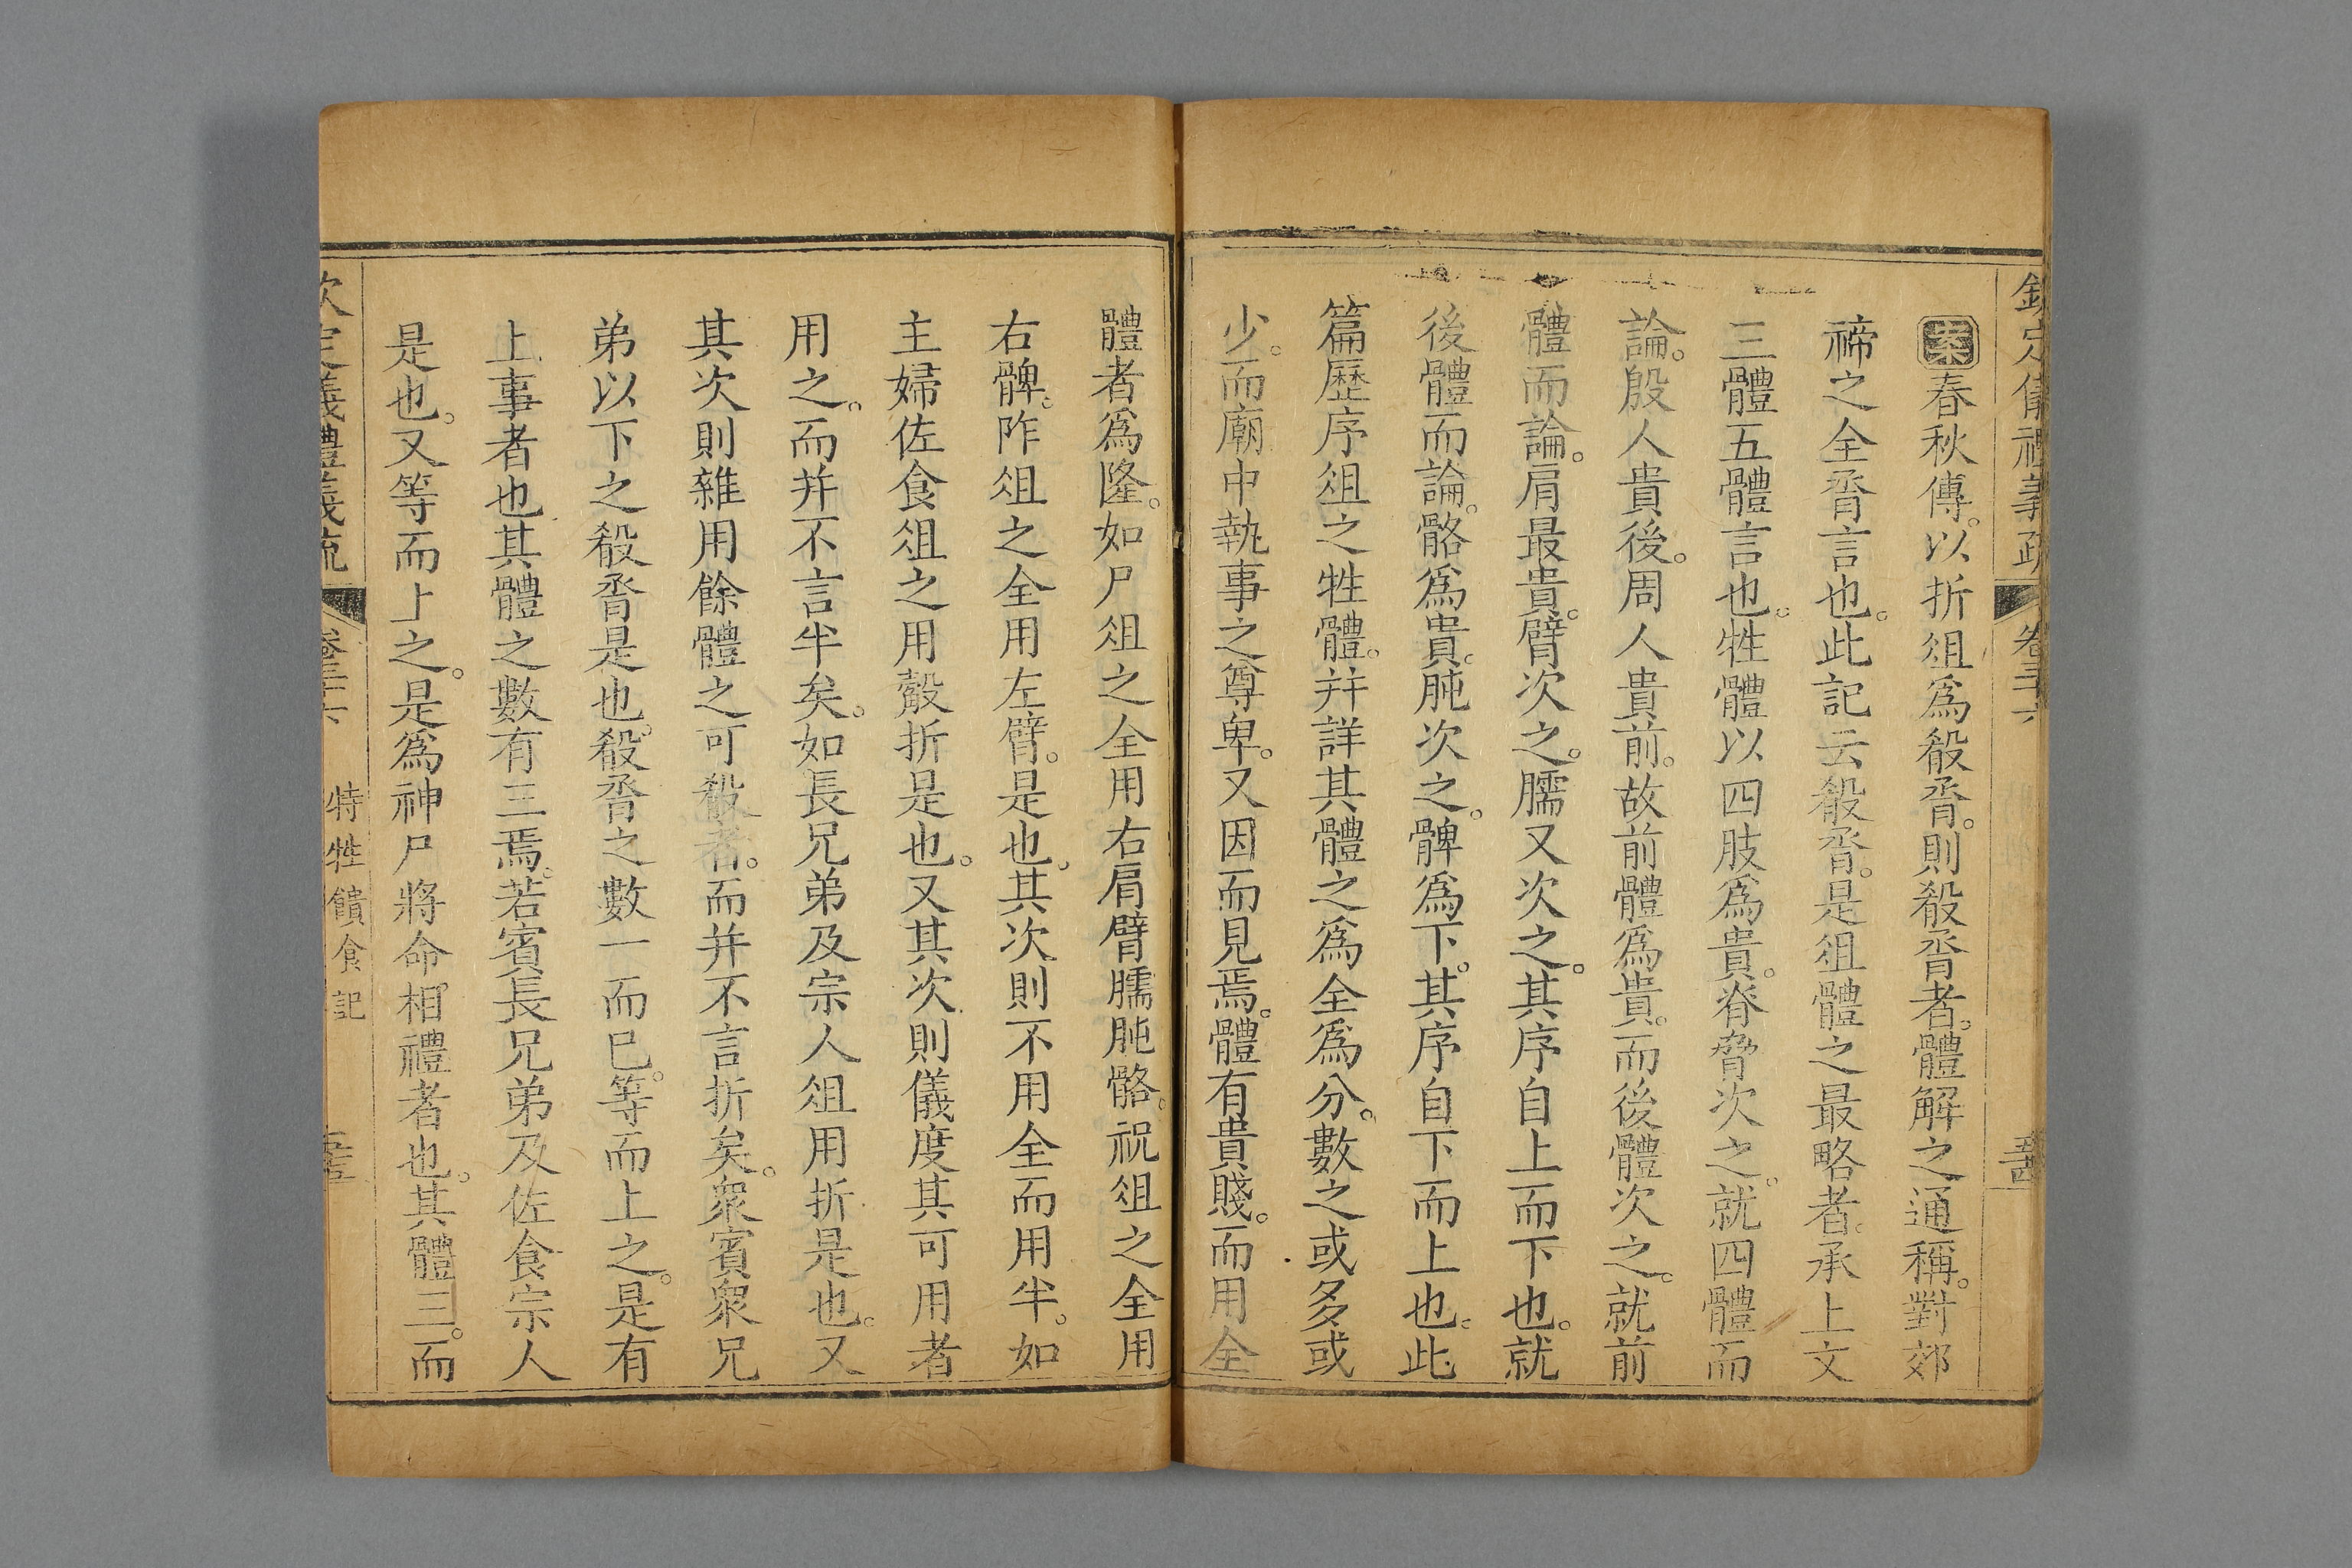 欽定儀禮義疏 卷三十六
案春秋傳。以折俎爲殽脀。則殽脀者。體解之通稱。對郊
禘之全脀言也。此記云殽脀。是俎體之最略者。承上文
三體五體言也。牲體以四肢爲貴。脊脅次之。就四體而
論。殷人貴後。周人貴前。故前體爲貴。而後體次之。就前
體而論。肩最貴。臂次之。臑又次之。其序自上而下也。就
後體而論。骼爲貴。肫次之。髀爲下。其序自下而上也。此
篇歷序俎之牲體。并詳其體之爲全爲分。數之或多或
少。而廟中執事之尊卑。又因而見焉。體有貴賤。而用全
體者爲隆。如尸俎之全用右肩臂臑肫骼。祝俎之全用
右髀。阼俎之全用左臂。是也。其次則不用全而用半。如
主婦佐食俎之用觳折是也。又其次則儀度其可用者
用之。而并不言半矣。如長兄弟及宗人俎用折是也。又
其次則雜用餘體之可殽者。而并不言折矣。眾賓眾兄
弟以下之殽脀是也。殽脀之數一而已。等而上之。是有
上事者也其體之數有三焉。若賓長兄弟及佐食宗人
是也。又等而上之。是爲神尸將命。相禮者也。其體三。而
欽定儀禮義疏 卷三十六 特牲饋食記